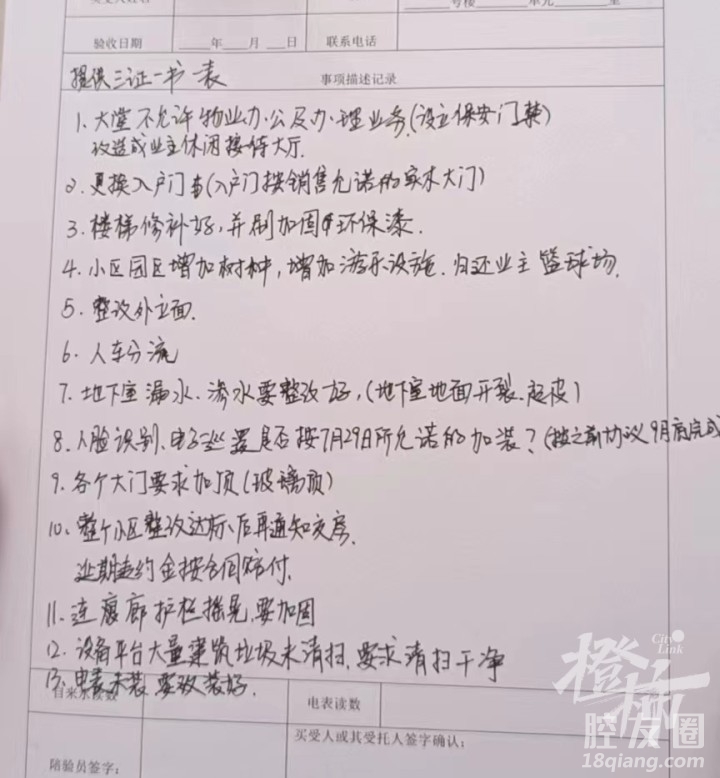 号楼 单元 室
验收日期 ____年____月____日 联系电话
提供三证一书一表 事项描述记录
1. 大堂不允许物业办公及办理业务.(设立保安门禁)
改造成业主休闲接待大厅.
2. 更换入户门(入户门按销售允诺的实木大门)
3. 楼梯修补好,并刷加固环保漆.
4. 小区园区增加树种,增加游乐设施.归还业主篮球场.
5. 整改外立面.
6. 人车分流
7. 地下室漏水、渗水要整改好,(地下室地面开裂、起皮)
8. 人脸识别、电子巡更是否按7月29日所允诺的加装?(按之前协议9月底完成
9. 各个大门要求加顶(玻璃顶)
10. 整个小区整改达标后再通知交房.
延期违约金按合同赔付.
11. 连廊护栏摇晃,要加固
12. 设备平台大量建筑垃圾未清扫,要求清扫干净
13. 电表未装,要改装好.
自来水读数 电表读数
买受人或其受托人签字确认:
陪验员签字:
City Link
橙柿
腔友圈
18qiang.com